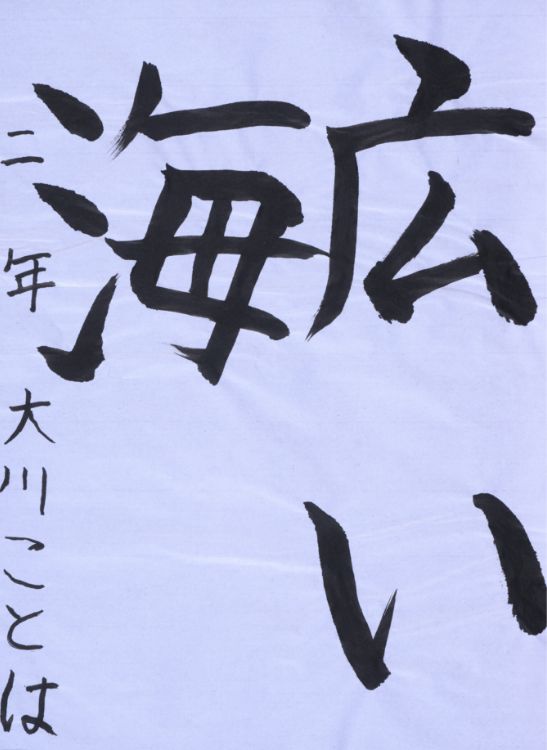 広い
海
二年 大川ことは